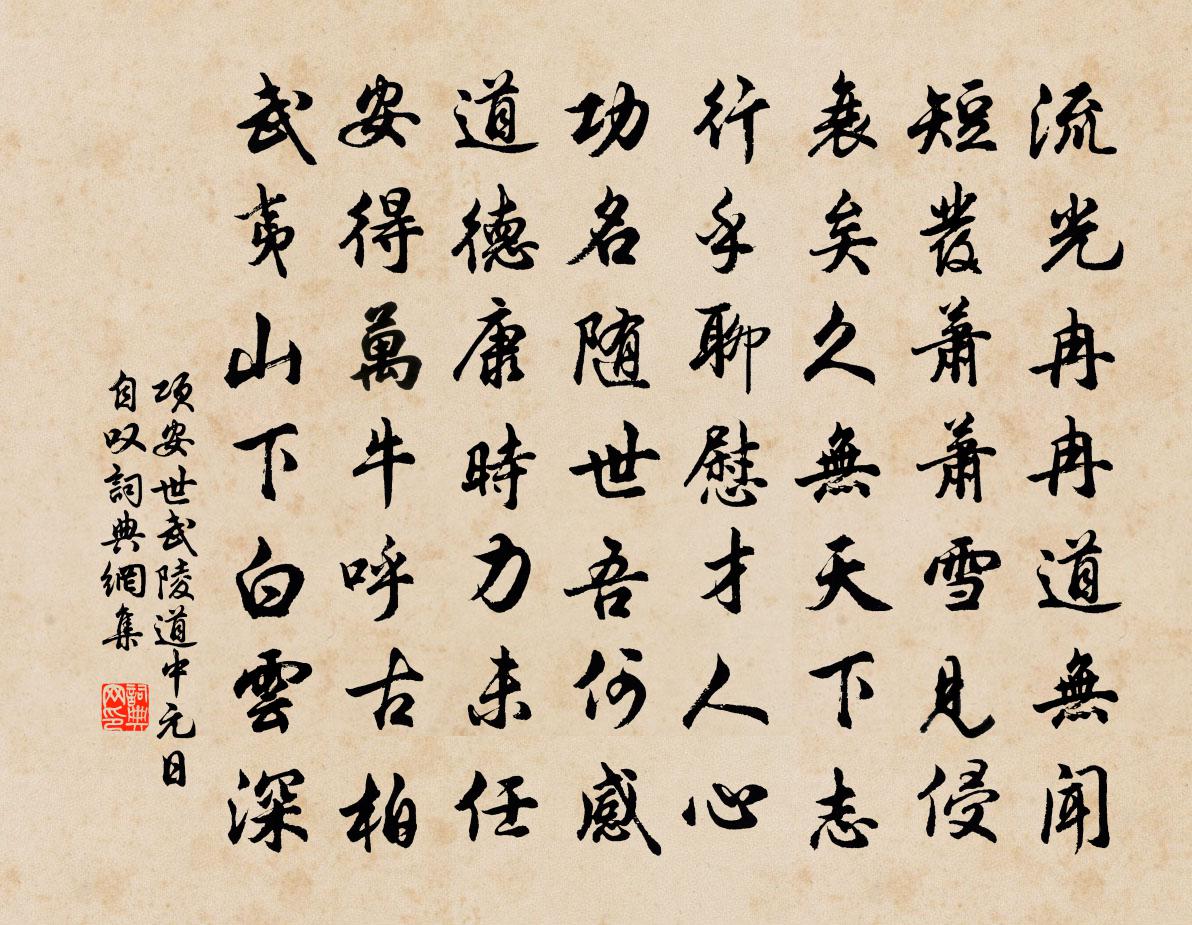 流光冉冉道無聞
短發蕭蕭雪見侵
衰矣久無天下志
行乎聊慰才人心
功名随世吾何感
道德康時力未任
安得萬牛呼古柏
武夷山下白雲深
项安世武陵道中元日
自叹詞典網集
詞典
网印